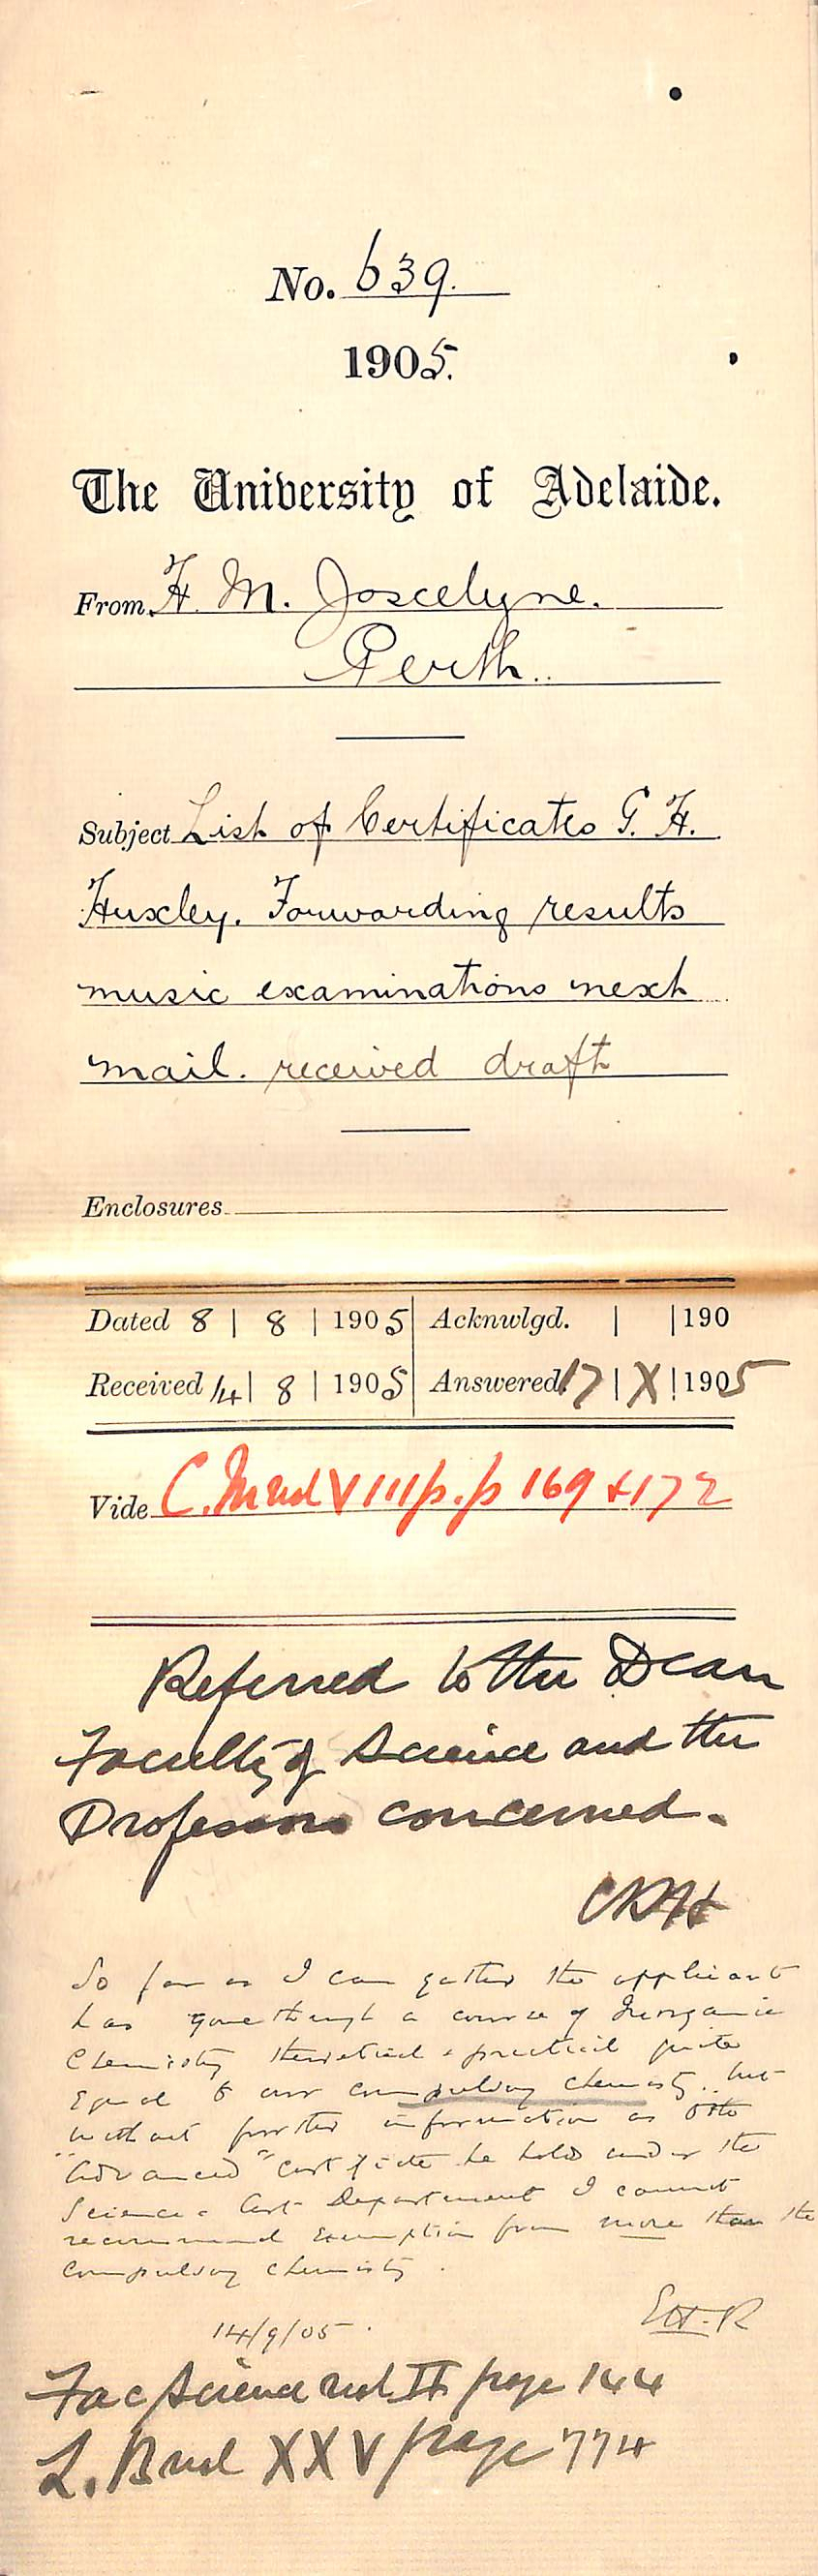 No. 639.
1905.
The University of Adelaide.
From H. M. Joscelyne.
Perth.
Subject List of Certificates G. H.
Huxley. Forwarding results
music examinations next
mail. received draft
Enclosures
Dated 8 | 8 | 1905 Acknwlgd. | | 190
Received 14 | 8 | 1905 Answered 17 | X | 1905
Vide C. M vol VIII p.p 169 & 172
Referred to the Dean
Faculty of Science and the
Professors concerned.
CRH
So far as I can gather the applicant
has gone through a course of Inorganic
Chemistry theoretical & practical quite
equal to our compulsory chemistry.. but
without further information as to the
"Advanced" Certificate he holds under the
Science & Art Department I cannot
recommend exemption from more than the
compulsory chemistry.
14/9/05. EH.R
Fac Science vol II page 144
L. B vol XXV page 774